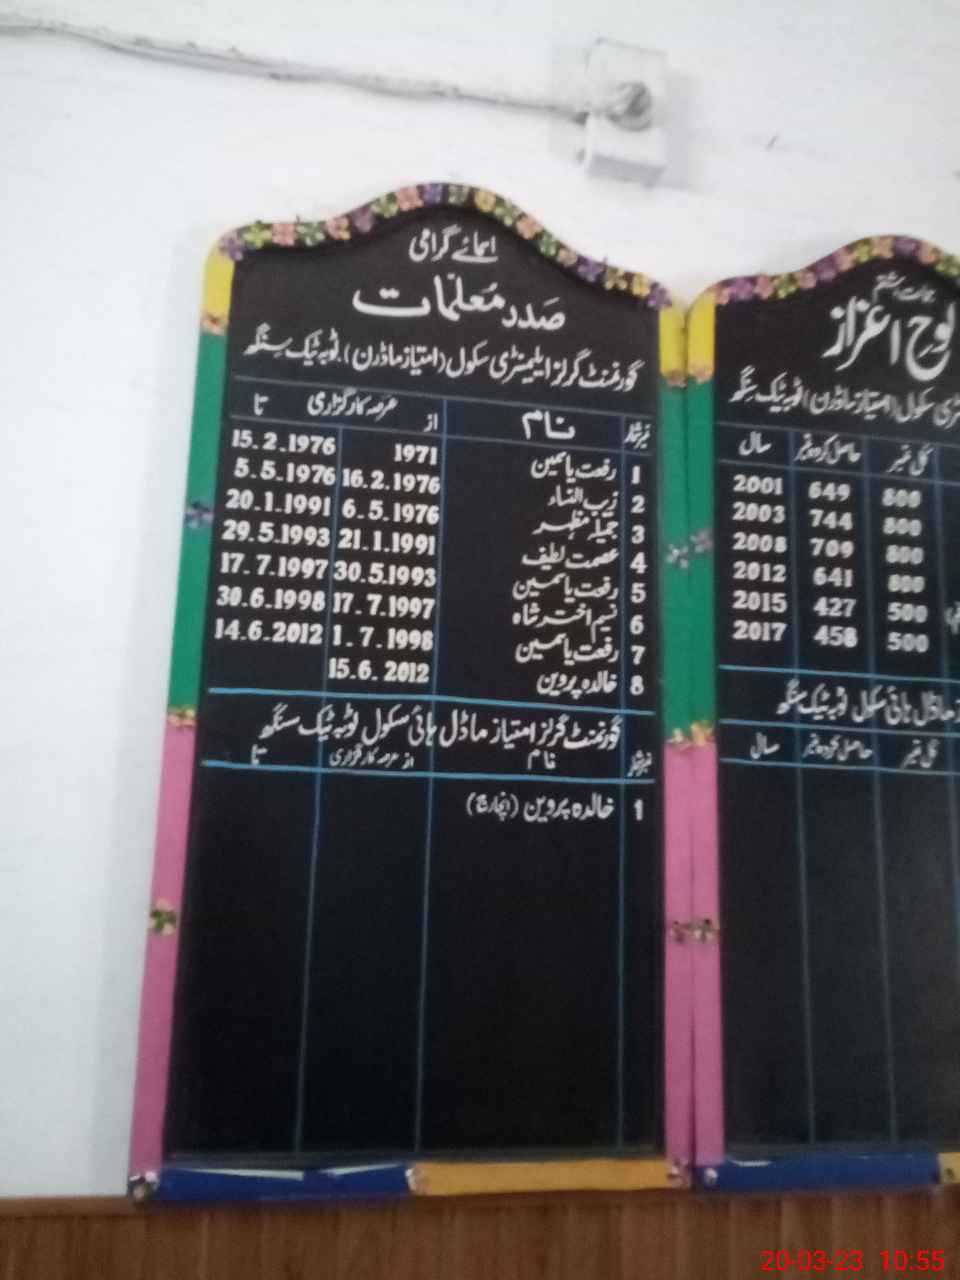 اسمائے گرامی
صدر معلّمات
گورنمنٹ گرلز ایلیمنٹری سکول (امتیاز ماڈرن) ٹوبہ ٹیک سنگھ
نمبر شمار نام عرصہ کارگزاری
از تا
1 رفعت یاسمین 1971 15.2.1976
2 زیب النساء 16.2.1976 5.5.1976
3 جمیلہ مظہر 6.5.1976 20.1.1991
4 عصمت لطیف 21.1.1991 29.5.1993
5 رفعت یاسمین 30.5.1993 17.7.1997
6 نسیم اختر شاہ 17.7.1997 30.6.1998
7 رفعت یاسمین 1.7.1998 14.6.2012
8 خالدہ پروین 15.6.2012
گورنمنٹ گرلز امتیاز ماڈل ہائی سکول ٹوبہ ٹیک سنگھ
نمبر شمار نام از عرصہ کارگزاری تا
1 خالدہ پروین (انچارج)
جماعت ہشتم
لوح اعزاز
سکول (امتیاز ماڈرن) ٹوبہ ٹیک سنگھ
کل نمبر حاصل کردہ نمبر سال
800 649 2001
800 744 2003
800 709 2008
800 641 2012
500 427 2015
500 458 2017
ماڈل ہائی سکول ٹوبہ ٹیک سنگھ
کل نمبر حاصل کردہ نمبر سال
20-03-23 10:55